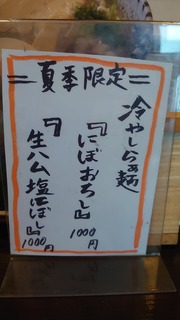 =夏季限定=
冷やしらぁ麺
『にぼおろし』
1000円
『生ハム塩にぼし』
1000円